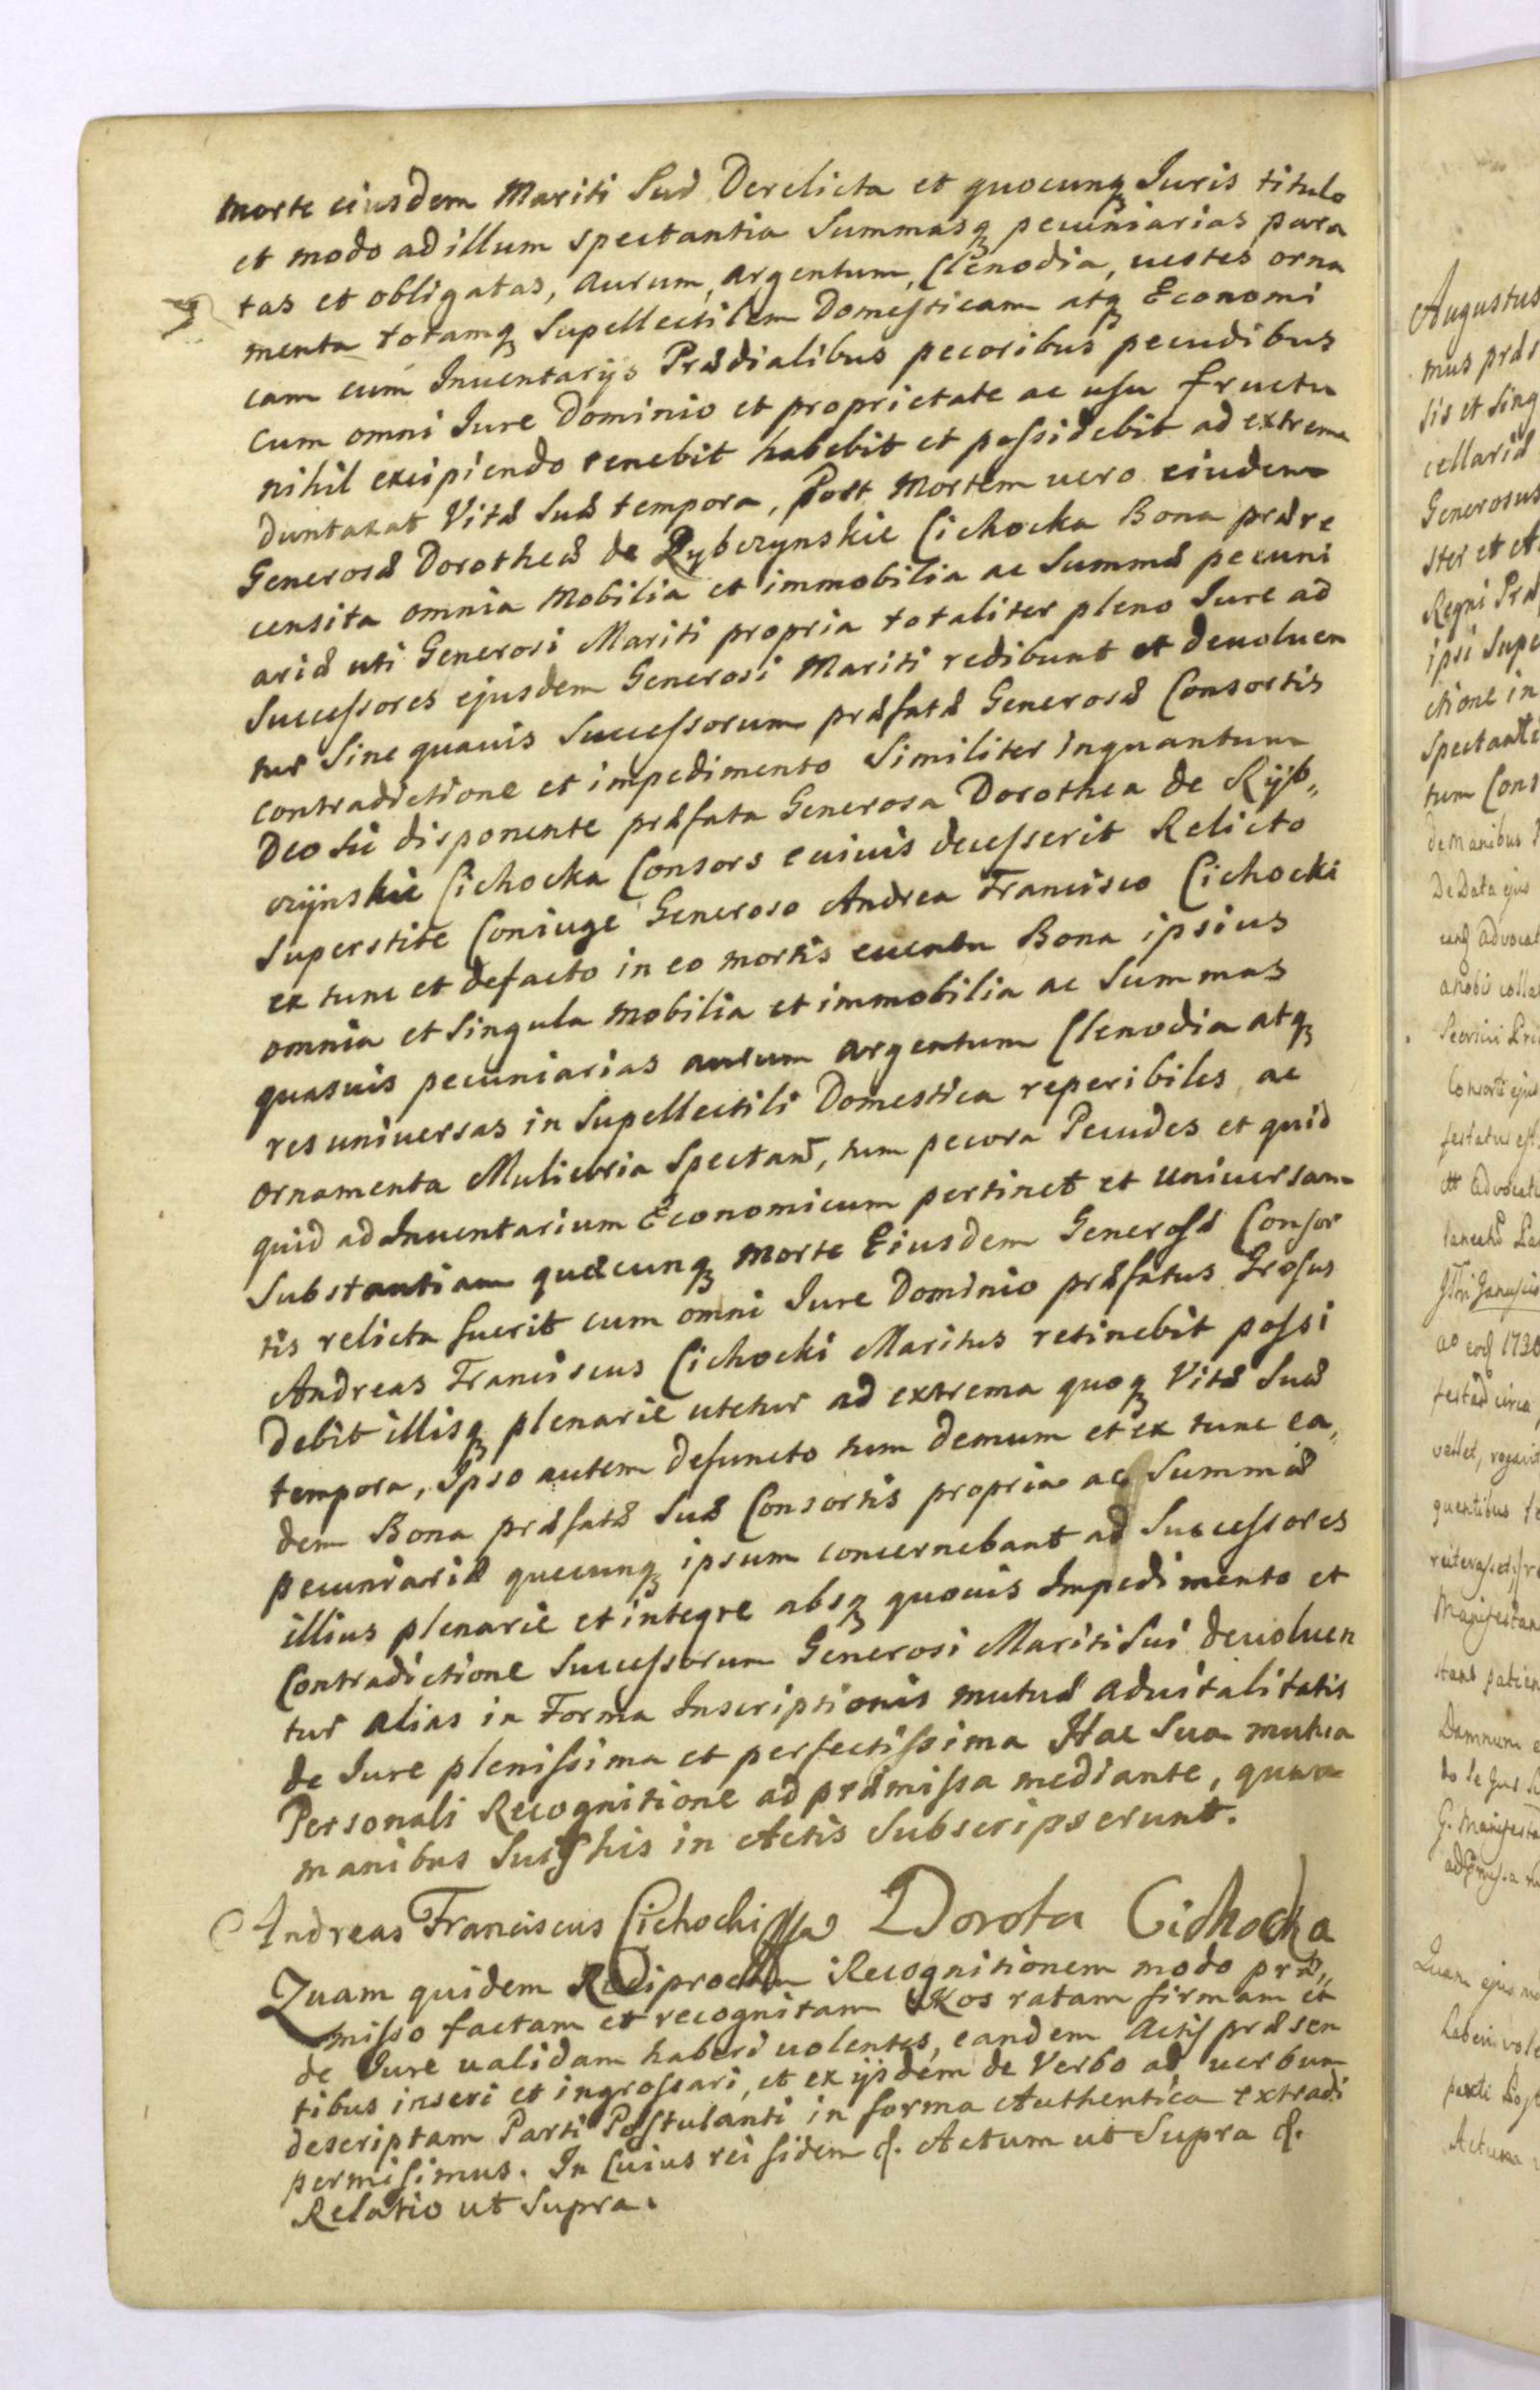 morte eiusdem Mariti Suæ Derelicta et quocunqꝫ Iuris titulo
et modo ad illum spectantia Summasqꝫ pecuniarias para
tas et obligatas, Aurum, Argentum, Clenodia, uestes orna
menta totamqꝫ Supellectilem Domesticam atqꝫ Economi
cam cum Inuentarijs Prædialibus pecoribus pecudibus
cum omni Iure Dominio et proprietate ac usu fructu
nihil excipiendo tenebit habebit et possidebit ad extrema
duntaxat Vitæ Suæ tempora, Post Mortem uero eiudem
Generosæ Dorotheæ de Rybczynskie Cichocka Bona prære
censita omnia Mobilia et immobilia ac Summæ pecuni
ariæ uti Generosi Mariti propria totaliter pleno Iure ad
Successores ejusdem Generosi Mariti redibunt et deuoluen
tur Sine quauis Successorum præfatæ Generosæ Consortis
contradictione et impedimento Similiter inquantum
Deo sic disponente præfata Generosa Dorothea de Ryb„
czynskie Cichocka Consors e uiuis decesserit Relicto
Superstite Coniuge Generoso Andrea Francisco Cichocki
ex tunc et defacto in eo mortis euentu Bona ipsius
omnia et Singula mobilia et immobilia ac Summas
quasuis pecuniarias aurum argentum Clenodia atqꝫ
res uniuersas in Supellectili Domestica reperibiles ac
ornamenta Muliebria Spectañ, tum pecora Pecudes et quid
quid ad Inuentarium Economicum pertinet et uniuersam
Substantiam quæcunqꝫ morte Eiusdem Generosæ Consor
tis relicta fuerit cum omni Iure Dominio præfatus Grosus
Andreas Franciscus Cichocki Maritus retinebit possi
debit illisqꝫ plenarie utetur ad extrema quoqꝫ Vitæ Suæ
tempora, Ipso autem defuncto tum demum et ex tunc ea„
dem Bona præfatæ Suæ Consortis propria ac Summæ
pecuniariæ quecunqꝫ ipsum concernebant ad Successores
illius plenarie et integre absqꝫ quouis Impedimento et
Contradictione Successorum Generosi Mariti Sui deuoluen
tur alias in Forma Inscriptionis mutuæ aduitalitatis
de Iure plenissima et perfectissima Hac Sua mutua
Personali Recognitione ad præmissa mediante, quam
manibus Suis his in Actis Subscripserunt.
Andreas Franciscus Cichocki Dorota Cichocka
Quam quidem Reciprocam Recognitionem modo præ„
misso factam et recognitam Nos ratam firmam et
de Iure ualidam haberi uolentes, eandem Actis præsen
tibus inseri et ingrossari, et ex ijsdem de Verbo ad uerbum
descriptam Parti Postulanti in forma Authentica extradi
permisimus. In Cuius rei fidem &. Actum ut Supra &.
Relatio ut Supra.
Augustus
mus præs
sis et Sing
cellariæ
Generosus
Regni Præ
ipsi Supe
ctione in
Spectante
tum Cons
de Manibus
De Data ejus